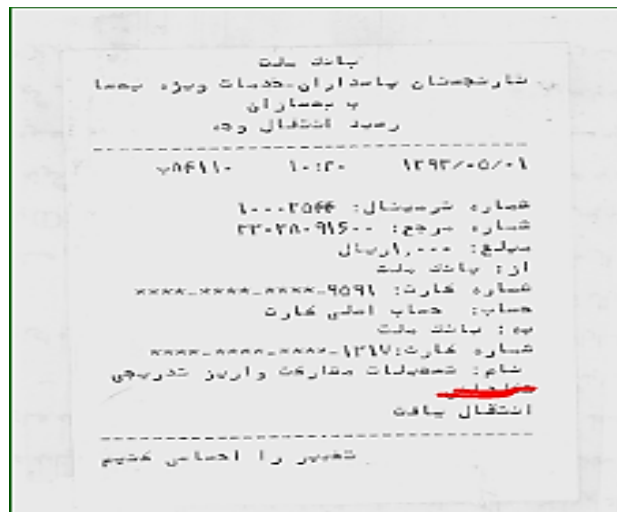 بانک ملت
نارنجستان پاسداران-خدمات ویژه بیمسا
ب بیمساران
رسید انتقال وجه
۱۳۹۳/۰۵/۰۱ ۱۰:۲۰
شماره ترمینال:
شماره مرجع:
مبلغ: ۱,۰۰۰ریال
از: بانک ملت
شماره کارت: ۹۵۹۱-****-****-****
حساب: حساب اصلی کارت
به: بانک ملت
شماره کارت:۱۲۱۷-****-****-****
نام: تسهیلات مشارکت واریز تدریجی
انتقال یافت
تغییر را احساس کنیم